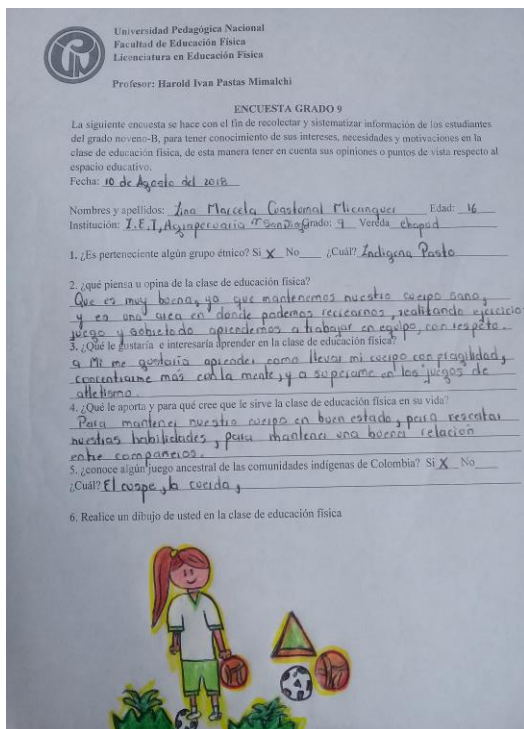 Universidad Pedagógica Nacional
Facultad de Educación Física
Licenciatura en Educación Física
Profesor: Harold Ivan Pastas Mimalchi
ENCUESTA GRADO 9
La siguiente encuesta se hace con el fin de recolectar y sistematizar información de los estudiantes
del grado noveno-B, para tener conocimiento de sus intereses, necesidades y motivaciones en la
clase de educación física, de esta manera tener en cuenta sus opiniones o puntos de vista respecto al
espacio educativo.
Fecha: 10 de Agosto del 2018
Nombres y apellidos: Lina Marcela Cuastumal Edad: 16
Institución: I.E.T, Agropecuaria Grado: 9 Vereda chapud
1. ¿Es perteneciente algún grupo étnico? Si X No ¿Cuál? Indigena Pasto
2. ¿qué piensa u opina de la clase de educación física?
Que es muy buena, ya que mantenemos nuestro cuerpo sano,
y es una area en donde podemos recrearnos, realitando ejercicio
juego y sobretodo aprendemos a trabajar en equipo, con respeto.
3. ¿Qué le gustaría e interesaría aprender en la clase de educación física?
a Mi me gustaria aprender como llevar mi cuerpo con fragilidad,
concentrarme más con la mente, y a superarme en los juegos de
atletismo.
4. ¿Qué le aporta y para qué cree que le sirve la clase de educación física en su vida?
Para mantener nuestro cuerpo en buen estado, para rescatar
nuestras habilidades, para mantener una buena relación
entre compañeros.
5. ¿conoce algún juego ancestral de las comunidades indígenas de Colombia? Si X No
¿Cuál? El cuspe, la cuerda,
6. Realice un dibujo de usted en la clase de educación física